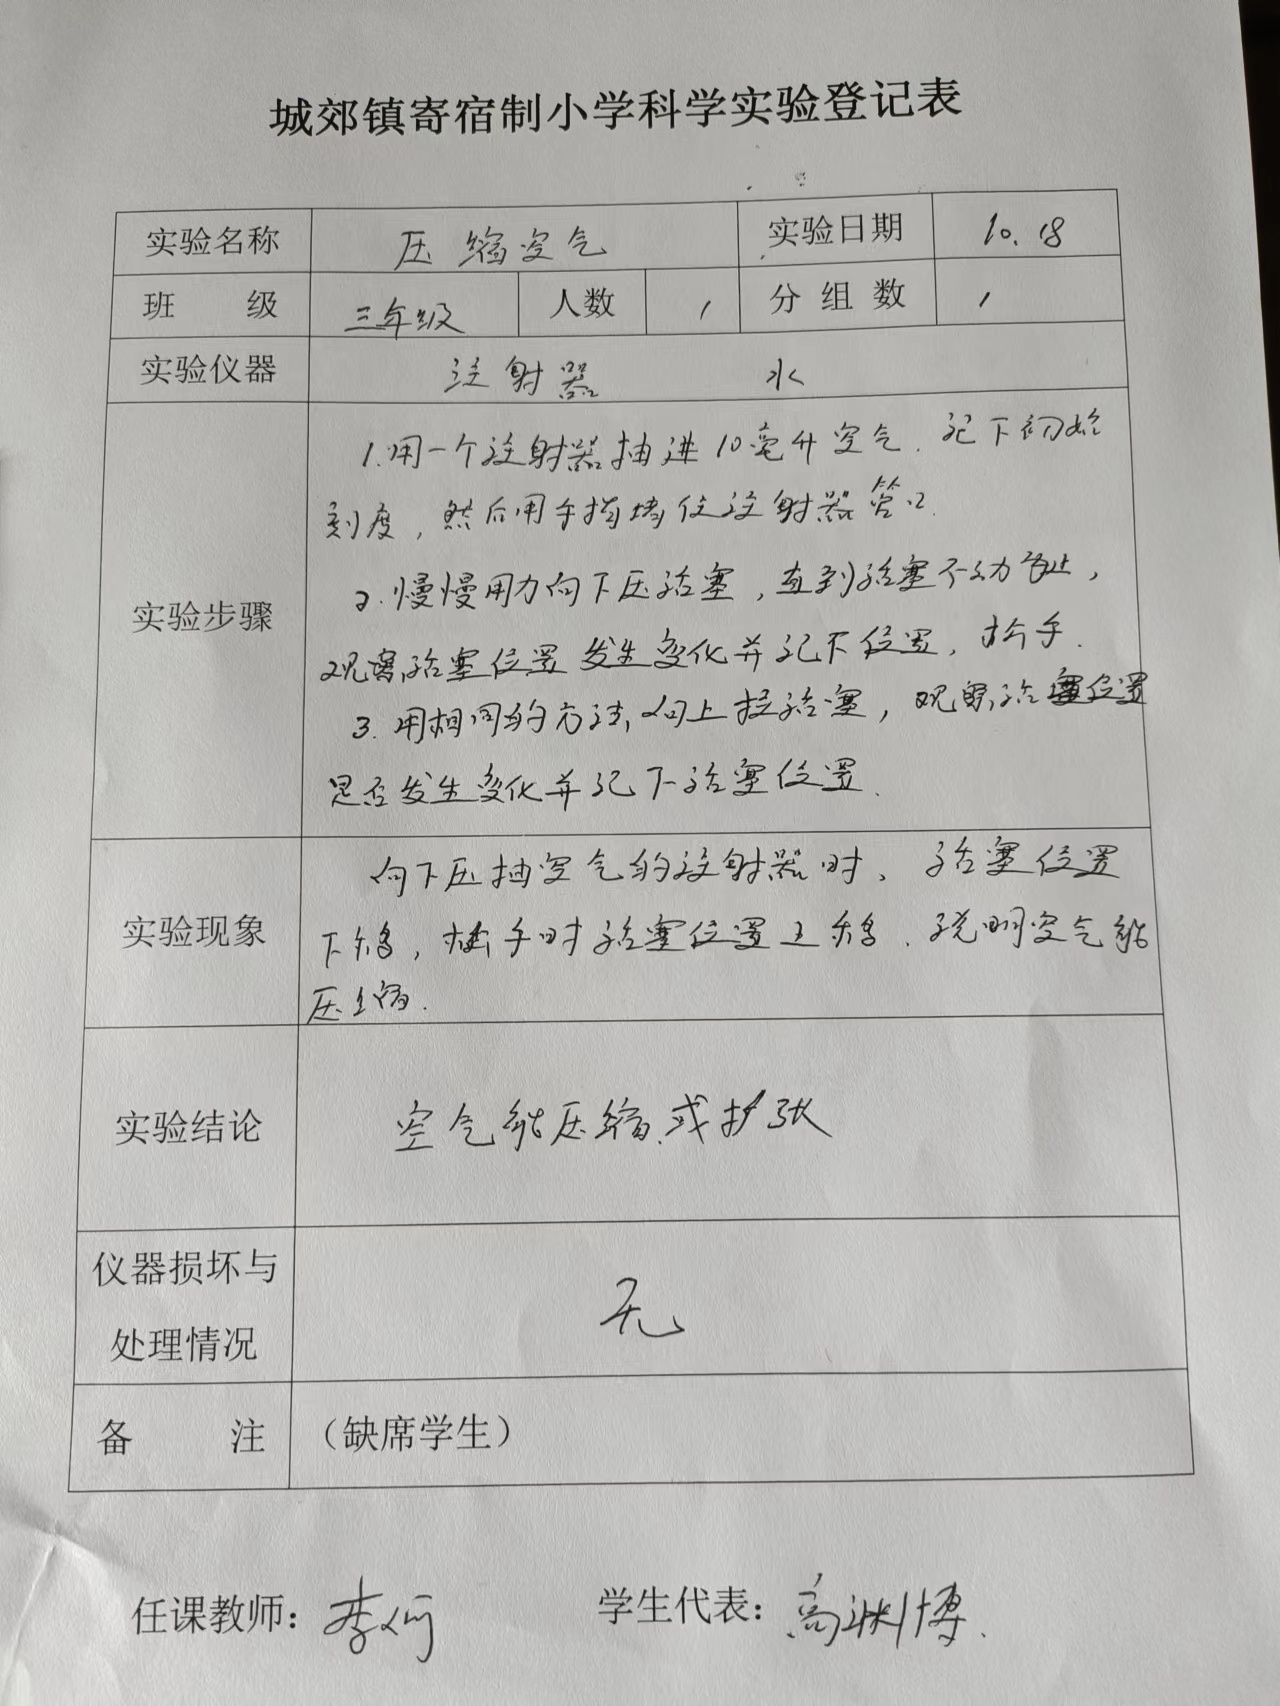 城郊镇寄宿制小学科学实验登记表
实验名称 压缩空气 实验日期 10.18
班 级 三年级 人数 1 分组数 1
实验仪器 注射器 水
1.用一个注射器抽进10毫升空气.记下初始
刻度,然后用手指堵住注射器管口.
实验步骤
2.慢慢用力向下压活塞,直到活塞不动为止,
观察活塞位置发生变化并记下位置,松手.
3.用相同的方法,向上拉活塞,观察活塞位置
是否发生变化并记下活塞位置.
向下压抽空气的注射器时、活塞位置
实验现象
下移,松手时活塞位置上移.说明空气能
压缩.
实验结论 空气能压缩或扩张
仪器损坏与
处理情况
无
备 注 (缺席学生)
任课教师: 李 学生代表: 高渊博.